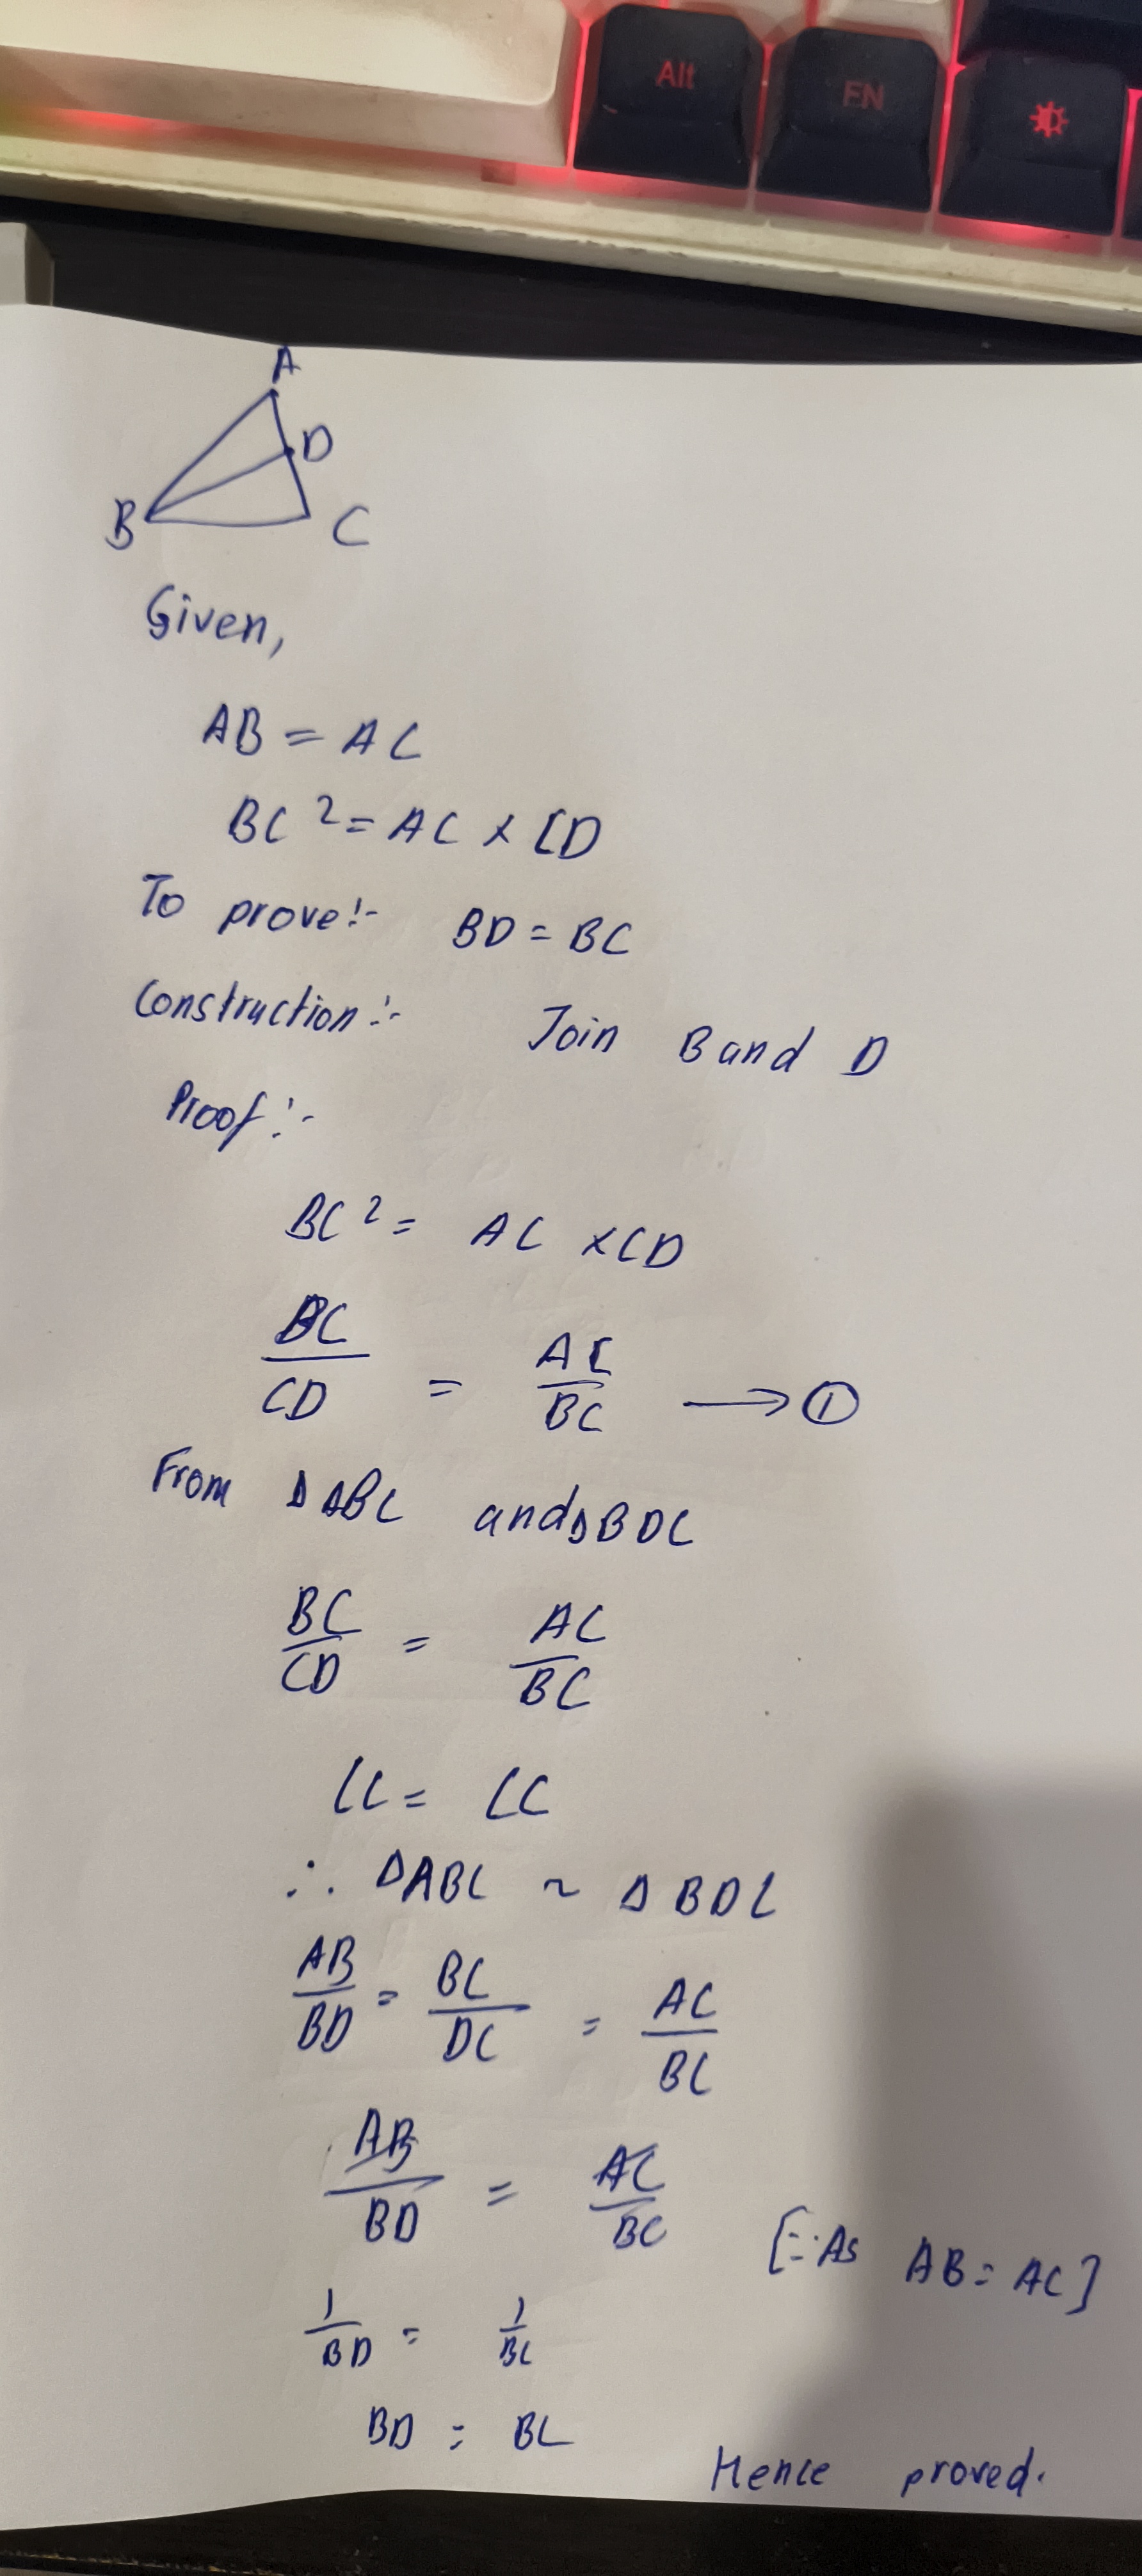 Alt
FN
A
D
B
C
Given,
AB = AC
BC² = AC × CD
To prove:- BD = BC
Construction:- Join B and D
Proof:-
BC² = AC × CD
BC/CD = AC/BC → ①
From Δ ABC and Δ BDC
BC/CD = AC/BC
∠C = ∠C
∴ ΔABC ~ Δ BDC
AB/BD = BC/DC = AC/BC
AB/BD = AC/BC [∵ As AB = AC]
1/BD = 1/BC
BD = BC
Hence proved.